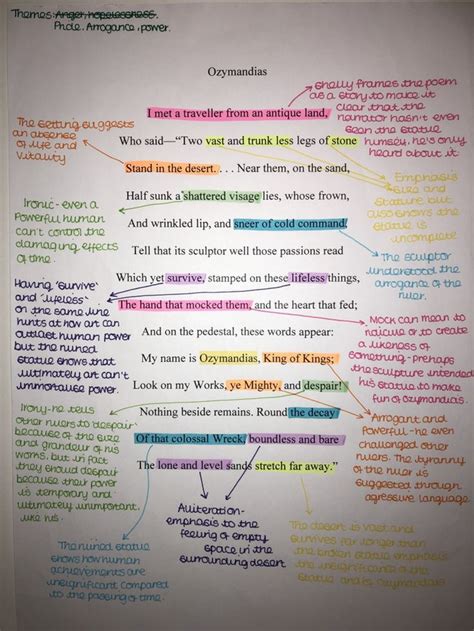 Themes: Anger, hopelessness.
Pride, Arrogance, power.
Ozymandias
Shelly frames the poem
as a story to make it
clear that the
narrator hasn't even
seen the statue
himself, he's only
heard about it
I met a traveller from an antique land,
Who said—“Two vast and trunk less legs of stone
Stand in the desert. . . . Near them, on the sand,
Half sunk a shattered visage lies, whose frown,
And wrinkled lip, and sneer of cold command,
Tell that its sculptor well those passions read
Which yet survive, stamped on these lifeless things,
The hand that mocked them, and the heart that fed;
And on the pedestal, these words appear:
My name is Ozymandias, King of Kings;
Look on my Works, ye Mighty, and despair!
Nothing beside remains. Round the decay
Of that colossal Wreck, boundless and bare
The lone and level sands stretch far away.”
The setting suggests
an absence
of life and
vitality
Ironic- even a
Powerful human
can't control the
damaging effects
of time.
Having 'survive'
and 'lifeless'
on the same line
hints at how art can
outlast human power
but the ruined
statue shows that
ultimately art can't
immortalise power.
Irony- he tells
other rulers to 'despair'
because of the size
and grandeur of his
works, but in fact
they should despair
because their power
is temporary and
ultimately unimportant,
like his.
The ruined statue
shows how human
achievements are
insignificant compared
to the passing of time.
Alliteration-
emphasis to the
feeling of empty
space in the
surrounding desert
Emphasis
size and
stature but
also shows the
statue is
incomplete
The sculptor
understood the
arrogance of the
ruler.
Mock can mean to
ridicule or to create
a likeness of
something- prehaps
the sculpture intended
his statue to make
fun of ozymandias
Arrogant and
Powerful- he even
challenged other
rulers. The tyranny
of the ruler is
suggested through
agressive language
The desert is vast and
survives far longer than
the broken statue emphasis
the insignificance of the
statue and Ozymandias